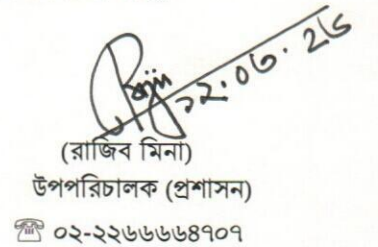 ১২.০৩.২৬
(রাজিব মিনা)
উপপরিচালক (প্রশাসন)
☎ ০২-২২৬৬৬৬৪৭০৭